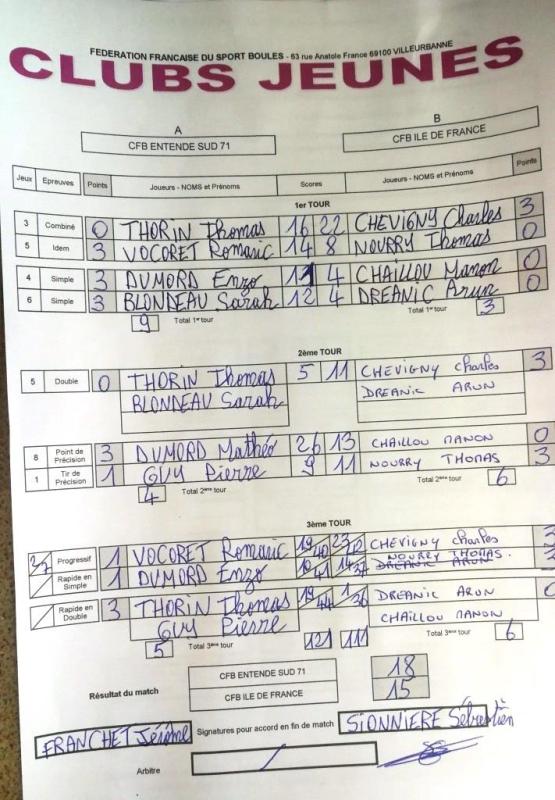 FEDERATION FRANCAISE DU SPORT BOULES - 63 rue Anatole France 69100 VILLEURBANNE
CLUBS JEUNES
A B
CFB ENTENDE SUD 71 CFB ILE DE FRANCE
Jeux Epreuves Points Joueurs - NOMS et Prénoms Scores Joueurs - NOMS et Prénoms Points
1er TOUR
3 Combiné 0 THORIN Thomas 16 22 CHEVIGNY Charles 3
5 Idem 3 VOCORET Romaric 14 8 NOURRY Thomas 0
4 Simple 3 DUMORD Enzo 11 4 CHAILLOU Manon 0
6 Simple 3 BLONDEAU Sarah 12 4 DREANIC Arun 0
9 Total 1er tour Total 1er tour 3
2ème TOUR
5 Double 0 THORIN Thomas 5 11 CHEVIGNY Charles 3
BLONDEAU Sarah DREANIC ARUN
8 Point de Précision 3 DUMORD Mathéo 26 13 CHAILLOU MANON 0
1 Tir de Précision 1 GUY Pierre 9 11 NOURRY THOMAS 3
4 Total 2ème tour Total 2ème tour 6
3ème TOUR
Progressif 1 VOCORET Romaric 19/40 23/42 CHEVIGNY Charles 3
NOURRY THOMAS.
Rapide en Simple 1 DUMORD Enzo DREANIC ARUN
Rapide en Double 3 THORIN Thomas 19/44 1/36 DREANIC ARUN 0
GUY Pierre CHAILLOU MANON
5 Total 3ème tour 121 111 6
Résultat du match
CFB ENTENDE SUD 71 18
CFB ILE DE FRANCE 15
FRANCHET Jérôme Signatures pour accord en fin de match SIONNIERE Sébastien
Arbitre /